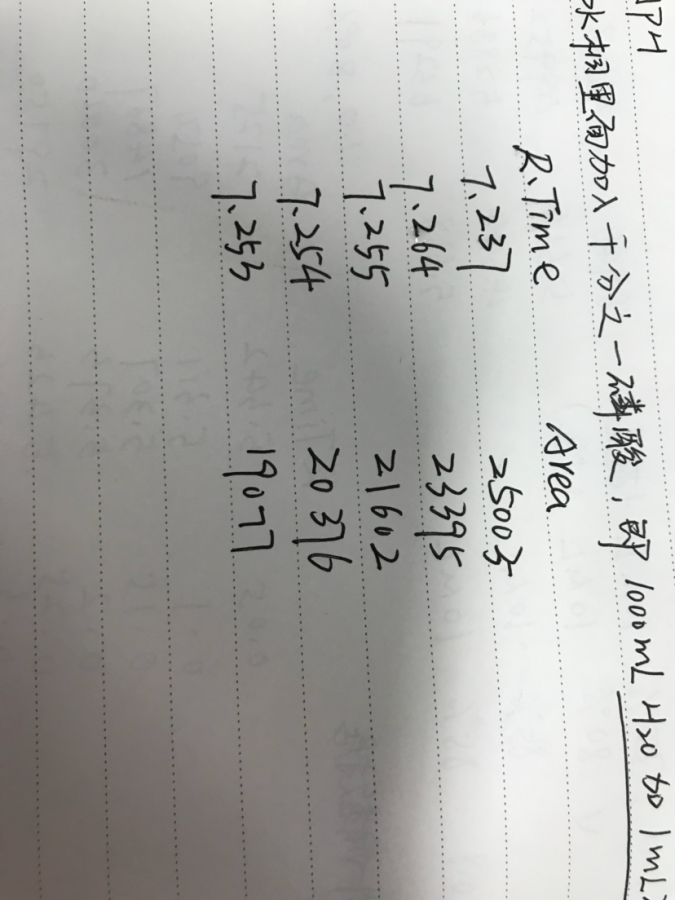 水相里面加入千分之一磷酸，即1000mL H2O加1mL
R.Time Area
7.237 25003
7.264 23395
7.255 21602
7.254 20376
7.253 19077